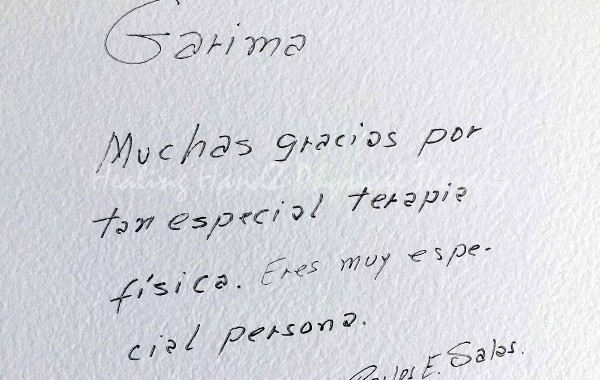 Garima
Muchas gracias por
tan especial terapia
física. Eres muy espe-
cial persona.
Carlos E. Salas.